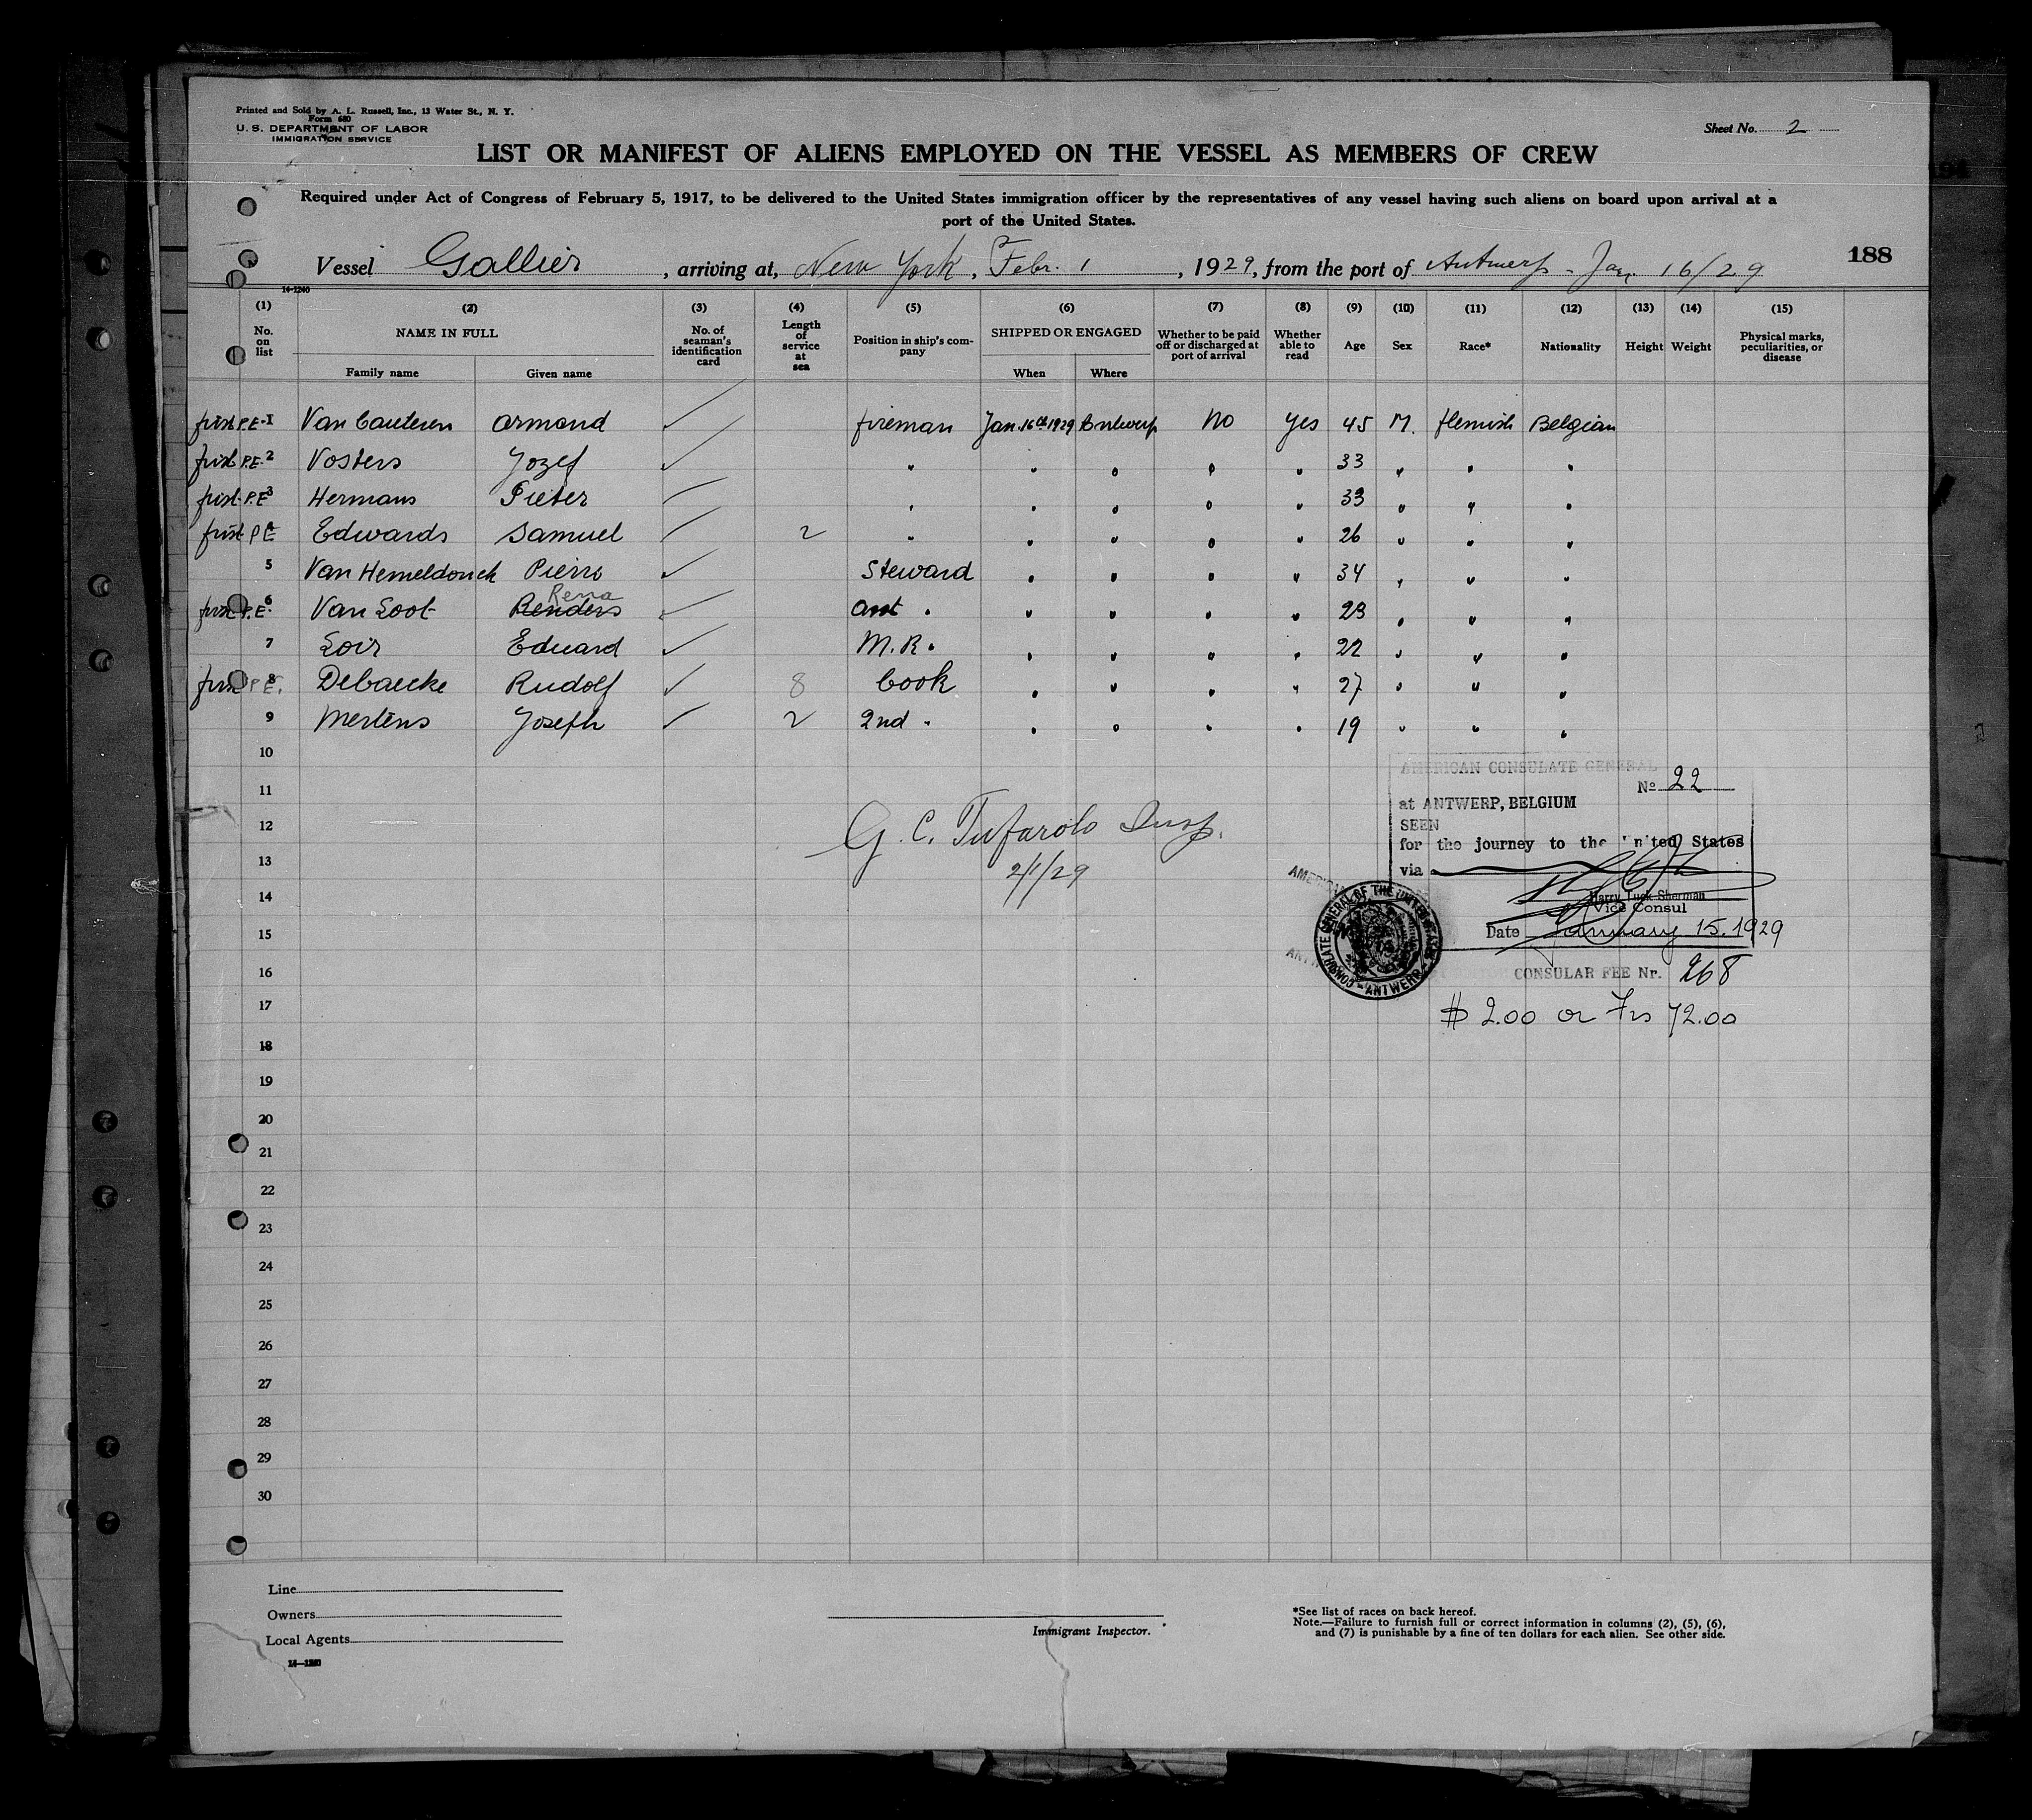 Printed and Sold by A. L. Russell, Inc., 13 Water St., N. Y.
Form 680
U. S. DEPARTMENT OF LABOR
IMMIGRATION SERVICE
Sheet No. 2
LIST OR MANIFEST OF ALIENS EMPLOYED ON THE VESSEL AS MEMBERS OF CREW
Required under Act of Congress of February 5, 1917, to be delivered to the United States immigration officer by the representatives of any vessel having such aliens on board upon arrival at a
port of the United States.
188
Vessel Gallier, arriving at, New York, Febr. 1, 1929, from the port of Antwerp - Jan. 16/29
14-1240
(1) (2) (3) (4) (5) (6) (7) (8) (9) (10) (11) (12) (13) (14) (15)
No. on list NAME IN FULL No. of seaman's identification card Length of service at sea Position in ship's company SHIPPED OR ENGAGED Whether to be paid off or discharged at port of arrival Whether able to read Age Sex Race* Nationality Height Weight Physical marks, peculiarities, or disease
Family name Given name When Where
first P.E. 1 Van Cauteren Armand fireman Jan. 16th 1929 Antwerp No yes 45 M. flemish Belgian
first P.E. 2 Vosters Jozef " " " " " 33 " " "
first P.E. 3 Hermans Pieter " " " " " 33 " " "
first P.E. 4 Edwards Samuel 2 " " " " " 26 " " "
5 Van Hemeldonck Pierre Steward " " " " 34 " " "
Rena
first P.E. 6 Van Loot Renders asst " " " " " 23 " " "
7 Loir Eduard M. R. " " " " 22 " " "
first P.E. 8 Debaecke Rudolf 8 Cook " " " " 27 " " "
9 Mertens Joseph 2 2nd " " " " " 19 " " "
10
11
12
13
14
15
16
17
18
19
20
21
22
23
24
25
26
27
28
29
30
G. C. Tufarolo Insp.
2/1/29
AMERICAN CONSULATE GENERAL
No 22
at ANTWERP, BELGIUM
SEEN
for the journey to the United States
via
Harry Tuck Sherman
Vice Consul
Date January 15. 1929
CONSULAR FEE Nr. 268
$ 2.00 or Frs 72.00
Line
Owners
Local Agents
14-1240
Immigrant Inspector.
*See list of races on back hereof.
Note.—Failure to furnish full or correct information in columns (2), (5), (6),
and (7) is punishable by a fine of ten dollars for each alien. See other side.